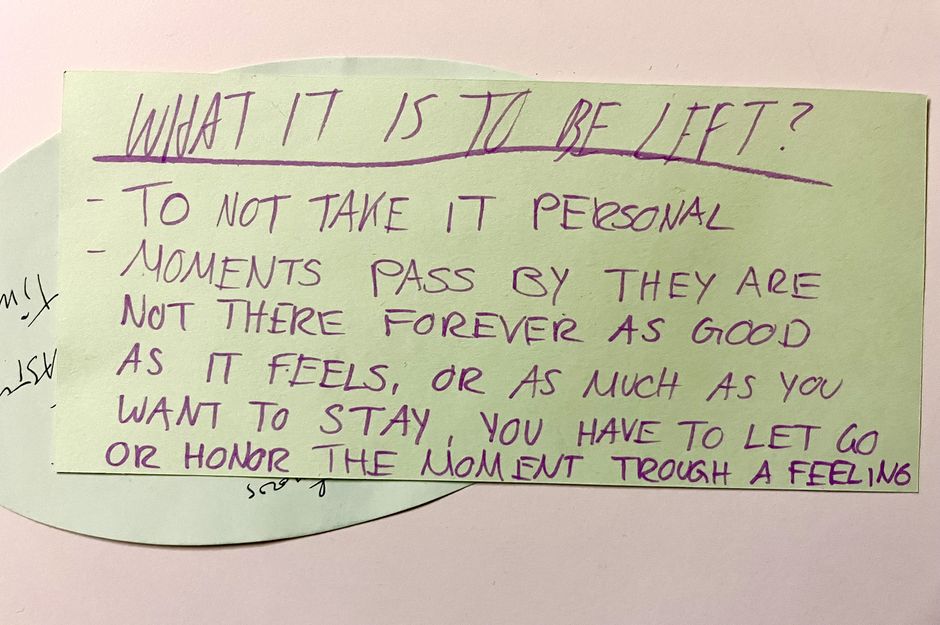 WHAT IT IS TO BE LEFT?
- TO NOT TAKE IT PERSONAL
- MOMENTS PASS BY THEY ARE
NOT THERE FOREVER AS GOOD
AS IT FEELS, OR AS MUCH AS YOU
WANT TO STAY, YOU HAVE TO LET GO
OR HONOR THE MOMENT TROUGH A FEELING